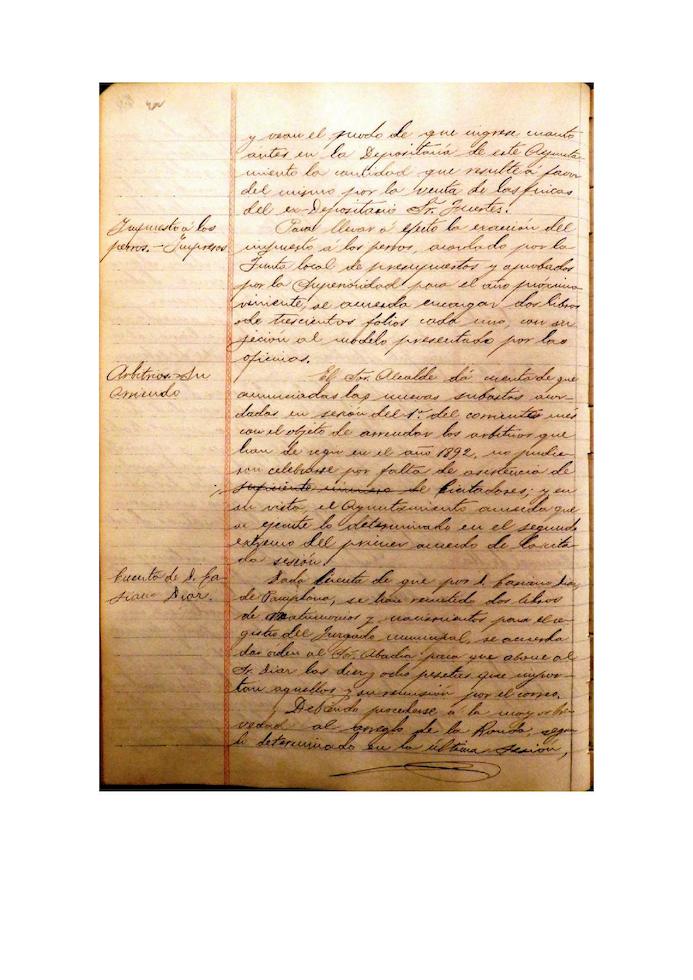 y vean el modo de que ingrese cuanto
ántes en la Depositaría de este Ayunta-
miento la cantidad que resulte á favor
del mismo por la venta de las fincas
del ex-Depositario Sr. Fuertes.
Impuesto á los
perros.- Impresos
Para llevar á efecto la exacción del
impuesto á los perros, acordado por la
Junta local de presupuestos y aprobados
por la Superioridad para el año próximo
viniente, se acuerda encargar dos libros
de trescientos folios cada uno, con su
jeción al modelo presentado por las
oficinas.
Arbitrios.- Su
Arriendo
El Sor. Alcalde dá cuenta de que
anunciadas las nuevas subastas acor-
dadas en sesión del 1º del corriente mes
con el objeto de arrendar los arbitrios que
han de regir en el año 1892, no pudie-
ron celebrarse por falta de asistencia de
suficiente número de licitadores; y en
su vista, el Ayuntamiento acuerda que
se ejecute lo determinado en el segundo
extremo del primer acuerdo de la cita-
da sesión.
Cuenta de D. Ca-
siano Diaz.
Dada cuenta de que por D. Casiano Diaz
de Pamplona, se han remitido dos libros
de matrimonios y nacimientos para el re-
gistro del Juzgado municipal, se acuerda
dar orden al Sor. Abadía para que abone al
Sr. Diaz las diez y ocho pesetas que impor-
tan aquellos y su remisión por el correo.
Debiendo procederse á la mayor bre-
vedad al arreglo de la Ronda, según
lo determinado en la última sesión,